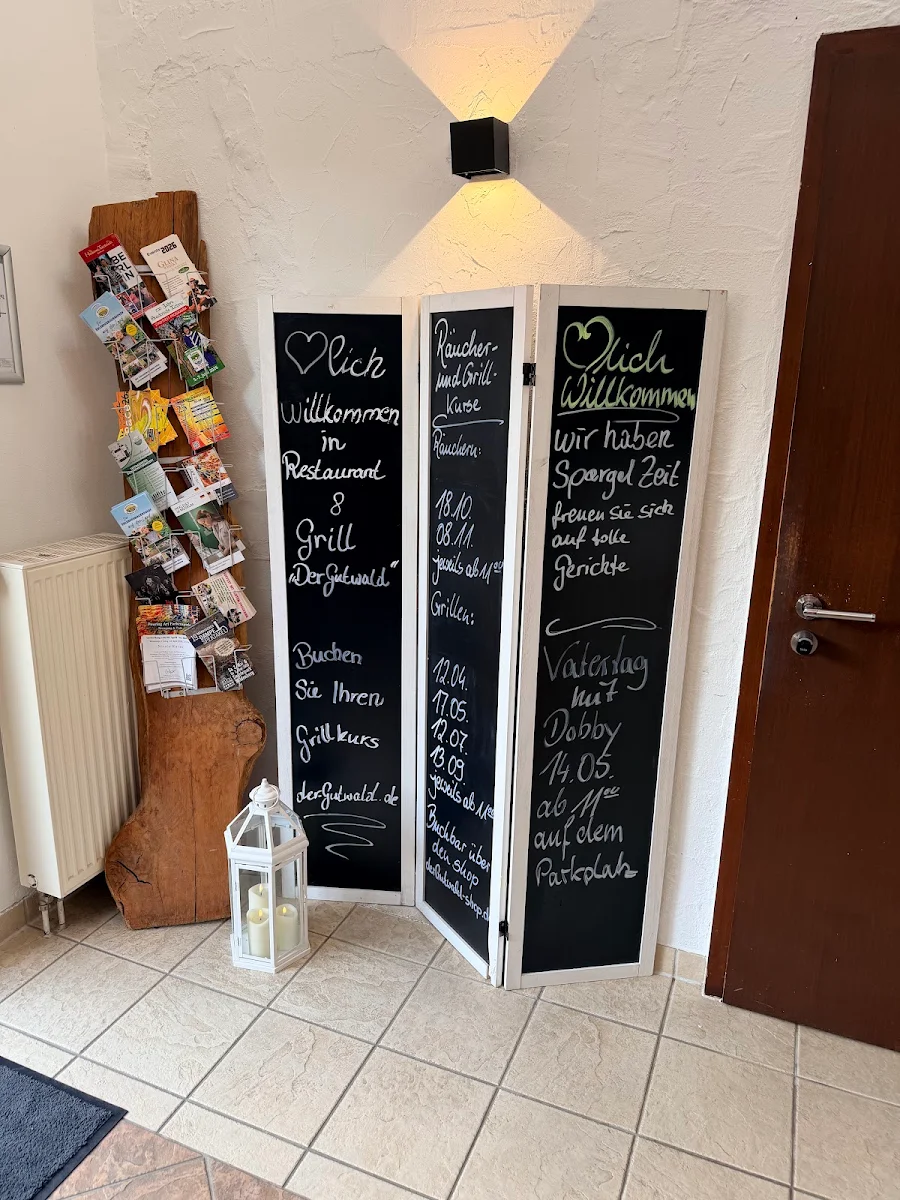 BERLIN
2026
♡lich
Willkommen
in
Restaurant
&
Grill
"Der Gutwald"
Buchen
Sie Ihren
Grillkurs
der-Gutwald.de
Räucher-
und Grill-
Kurse
Räuchern:
18.10.
08.11.
jeweils ab 11⁰⁰
Grillen:
12.04.
17.05.
12.07.
13.09.
jeweils ab 11⁰⁰
Buchbar über
den shop
derGutwald-shop.de
♡lich
Willkommen
wir haben
Spargel Zeit
freuen sie sich
auf tolle
Gerichte
Vatertag
mit
Dobby
14.05.
ab 11⁰⁰
auf dem
Parkplatz